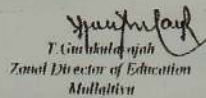 T. Gurukularajah
Zonal Director of Education
Mullaitivu